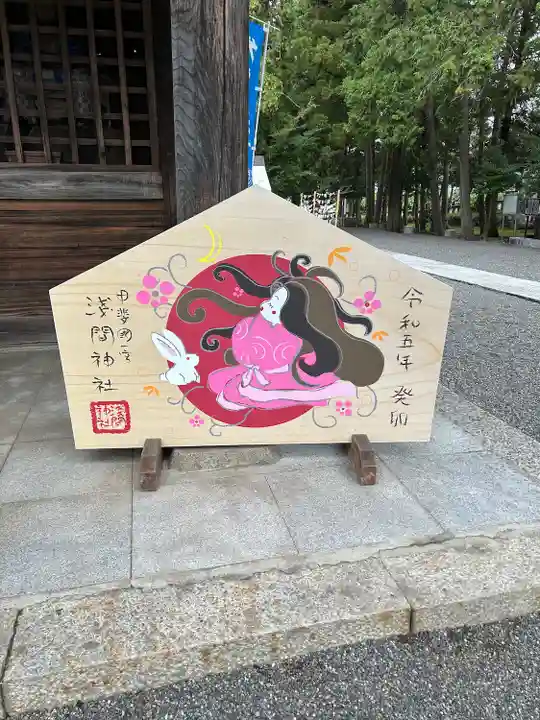 令和五年 癸卯
甲斐國一宮
浅間神社